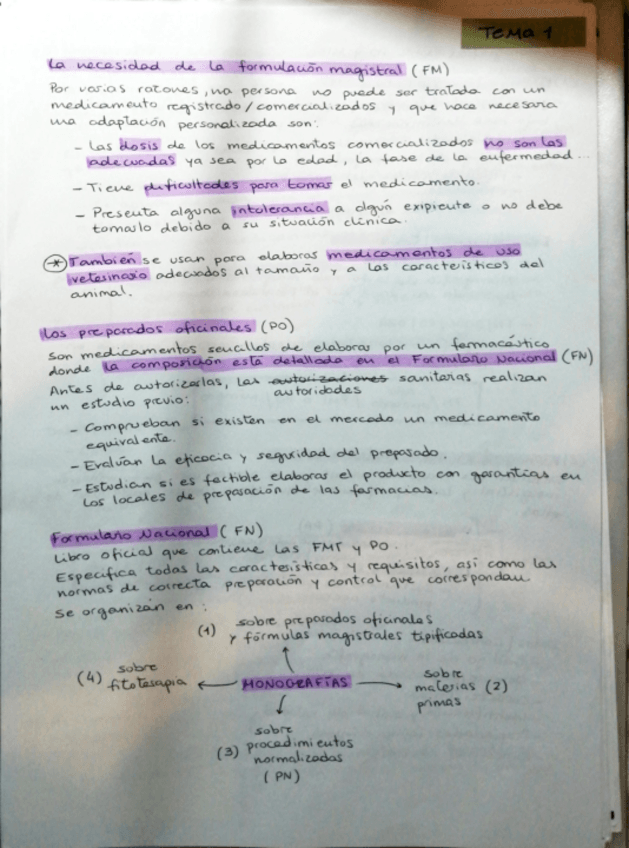 TEMA 1
La necesidad de la formulación magistral (FM)
Por varias razones, una persona no puede ser tratada con un
medicamento registrado/comercializados y que hace necesaria
una adaptación personalizada son:
- Las dosis de los medicamentos comercializados no son las
adecuadas ya sea por la edad, la fase de la enfermedad...
- Tiene dificultades para tomar el medicamento.
- Presenta alguna intolerancia a algún exipiente o no debe
tomarlo debido a su situación clínica.
* También se usan para elaborar medicamentos de uso
veterinario adecuados al tamaño y a las características del
animal.
Los preparados oficinales (PO)
Son medicamentos sencillos de elaborar por un farmacéutico
donde la composición está detallada en el Formulario Nacional (FN)
Antes de autorizarlas, las autorizaciones sanitarias realizan
autoridades
un estudio previo:
- Comprueban si existen en el mercado un medicamento
equivalente.
- Evalúan la eficacia y seguridad del preparado.
- Estudian si es factible elaborar el producto con garantías en
los locales de preparación de las farmacias.
Formulario Nacional (FN)
Libro oficial que contiene las FMT y PO.
Especifica todas las características y requisitos, así como las
normas de correcta preparación y control que correspondan.
Se organizan en:
(1) sobre preparados oficinales
y fórmulas magistrales tipificadas
(4) sobre
fitoterapia
MONOGRAFÍAS
sobre
materias (2)
primas
sobre
(3) procedimientos
normalizados
(PN)